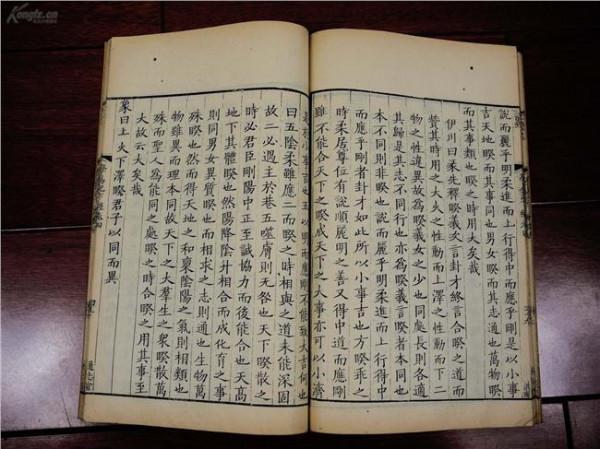 說而麗乎明柔進而上行得中而應乎剛是以小事
吉天地睽而其事同也男女睽而其志通也萬物睽
而其事類也睽之時用大矣哉
伊川曰彖先釋睽義次言卦才終言合睽之道而
贊其時用之大火之性動而上澤之性動而下二
物之性違異故為睽義女之少也同處長則各適
其歸是其志不同行也亦為睽義言睽者本同也
本不同則非睽也說而麗乎明柔進而上行得中
而應乎剛者卦才如此所以小事吉也方睽乖之
時柔居尊位有說順麗明之善又得中道而應剛
雖不能合天下之睽成天下之大事亦可以小濟
是於小事吉也五以明而應剛不能致大吉何也
曰五陰柔雖應二而睽之時相與之道未能深固
故二必遇主於巷五噬膚則无咎也天下睽散之
時必君臣剛陽中正至誠協力而後能合也天高
地下其體睽也然陽降陰升相合而成化育之事
則同男女異質睽也而相求之志則通也生物萬
殊睽也然而得天地之和稟陰陽之氣則相類也
物雖異而理本同故天下之大羣生之眾睽散萬
殊而聖人為能同之處睽之時合睽之用其事至
大故云大矣哉
象曰上火下澤睽君子以同而異
通志堂
Kongfz.cn